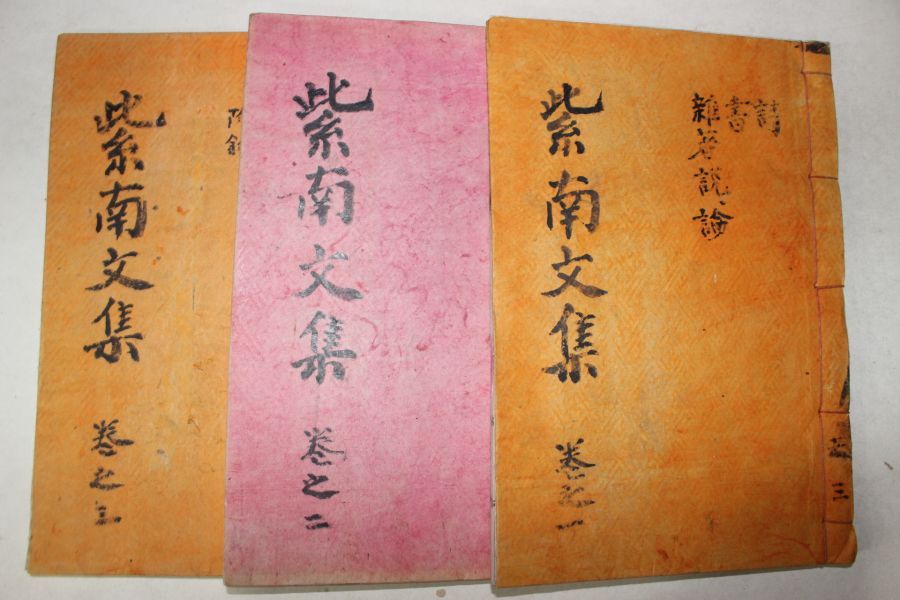 詩
書
雜著說論
紫南文集 卷之一
三
紫南文集 卷之二
附錄
紫南文集 卷之三